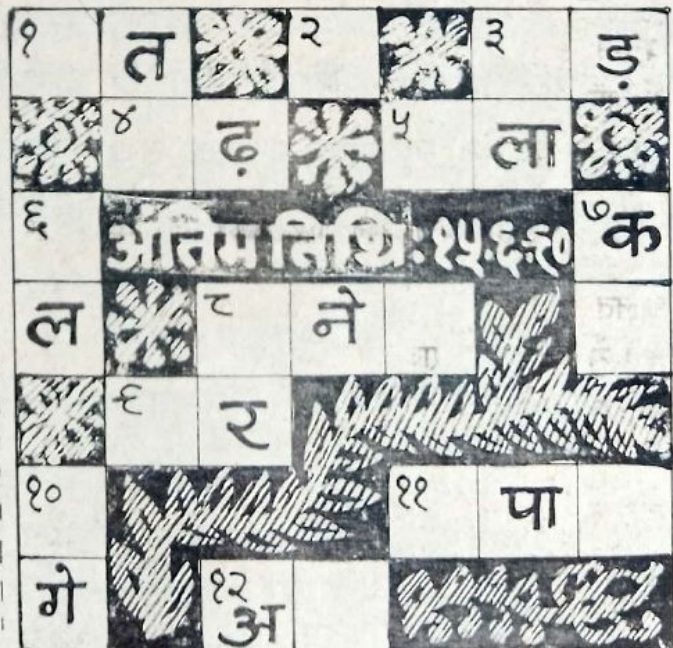 १ त २ ३ ड़
४ ढ़ ५ ला
६ अंतिम तिथि:१५.६.९० ७ क
ल ८ ने
९ र
१० ११ पा
गे १२ अ